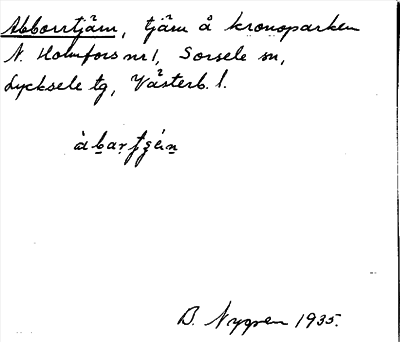 Abborrtjärn, tjärn å kronoparken
N. Holmfors nr 1, Sorsele sn,
Lycksele tg, Västerb. l.
B. Nygren 1935.